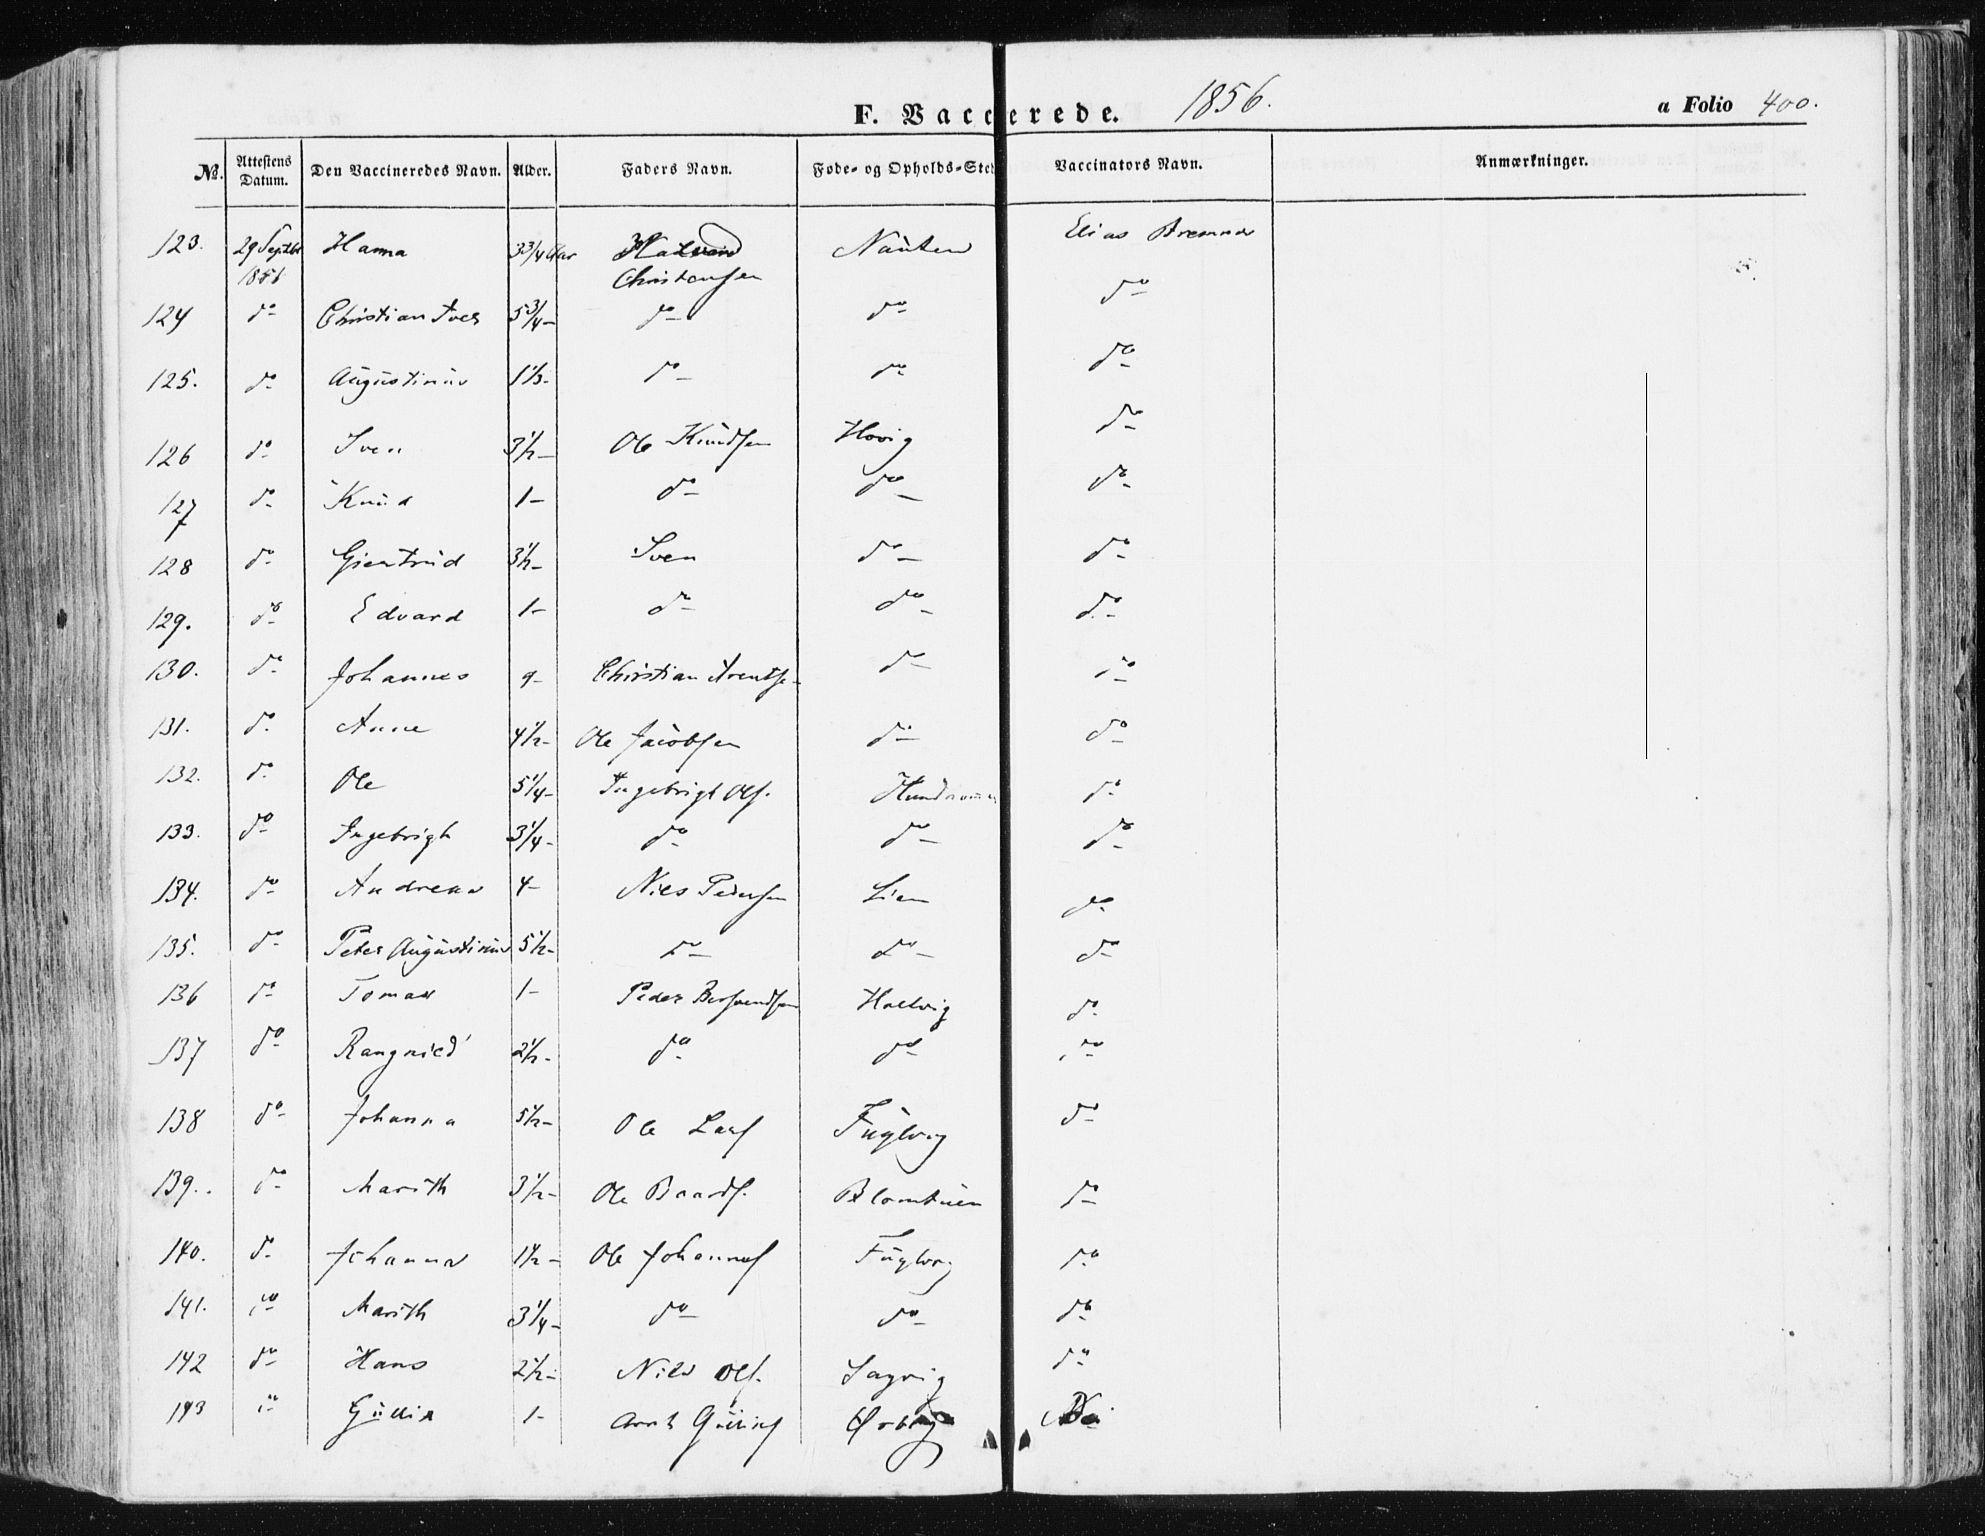 F. Vaccinerede. 1856. a Folio 400.
No. Attestens Datum. Den Vaccineredes Navn. Alder. Faders Navn. Føde- og Opholds-Sted Vaccinators Navn. Anmærkninger.
123. 29 Septbr 1856 Hanna 3 3/4 Aar Christensen Nausten Elias Bremnes
124 do Christian Iver 5 3/4 - do do do
125. do Augustinus 1 1/3 - do do do
126 do Sven 3 1/2 - Ole Knudsen Hovig do
127 do Knud 1 - do do do
128 do Giertrud 3 1/2 - Sven do do
129. do Edvard 1 - do do do
130. do Johannes 9 - Christian Arentse- do do
131. do Anne 4 1/2 - Ole Jacobsen do do
132. do Ole 5 1/4 - Ingebrigt Ols. do
133. do Ingebrigt 3 1/4 - do do do
134. do Andreas 4 - Niels Pedersen Lien do
135. do Peter Augustinus 5 1/2 - do do do
136 do Tomas 1 - Peder Hallvig do
137 do Rangnild 2 1/2 - do do do
138 do Johanna 5 1/2 - Ole Lars Fuglvog do
139. do Marith 3 1/2 - Ole Baards. Blomtuen do
140. do Johanna 1 1/2 - Ole Johannes Fuglvog do
141. do Marith 3 1/4 - do do do
142 do Hans 2 1/2 - Nils Ols. Sagvig do
143 do Gullik 1 - Arnt Gulliks do